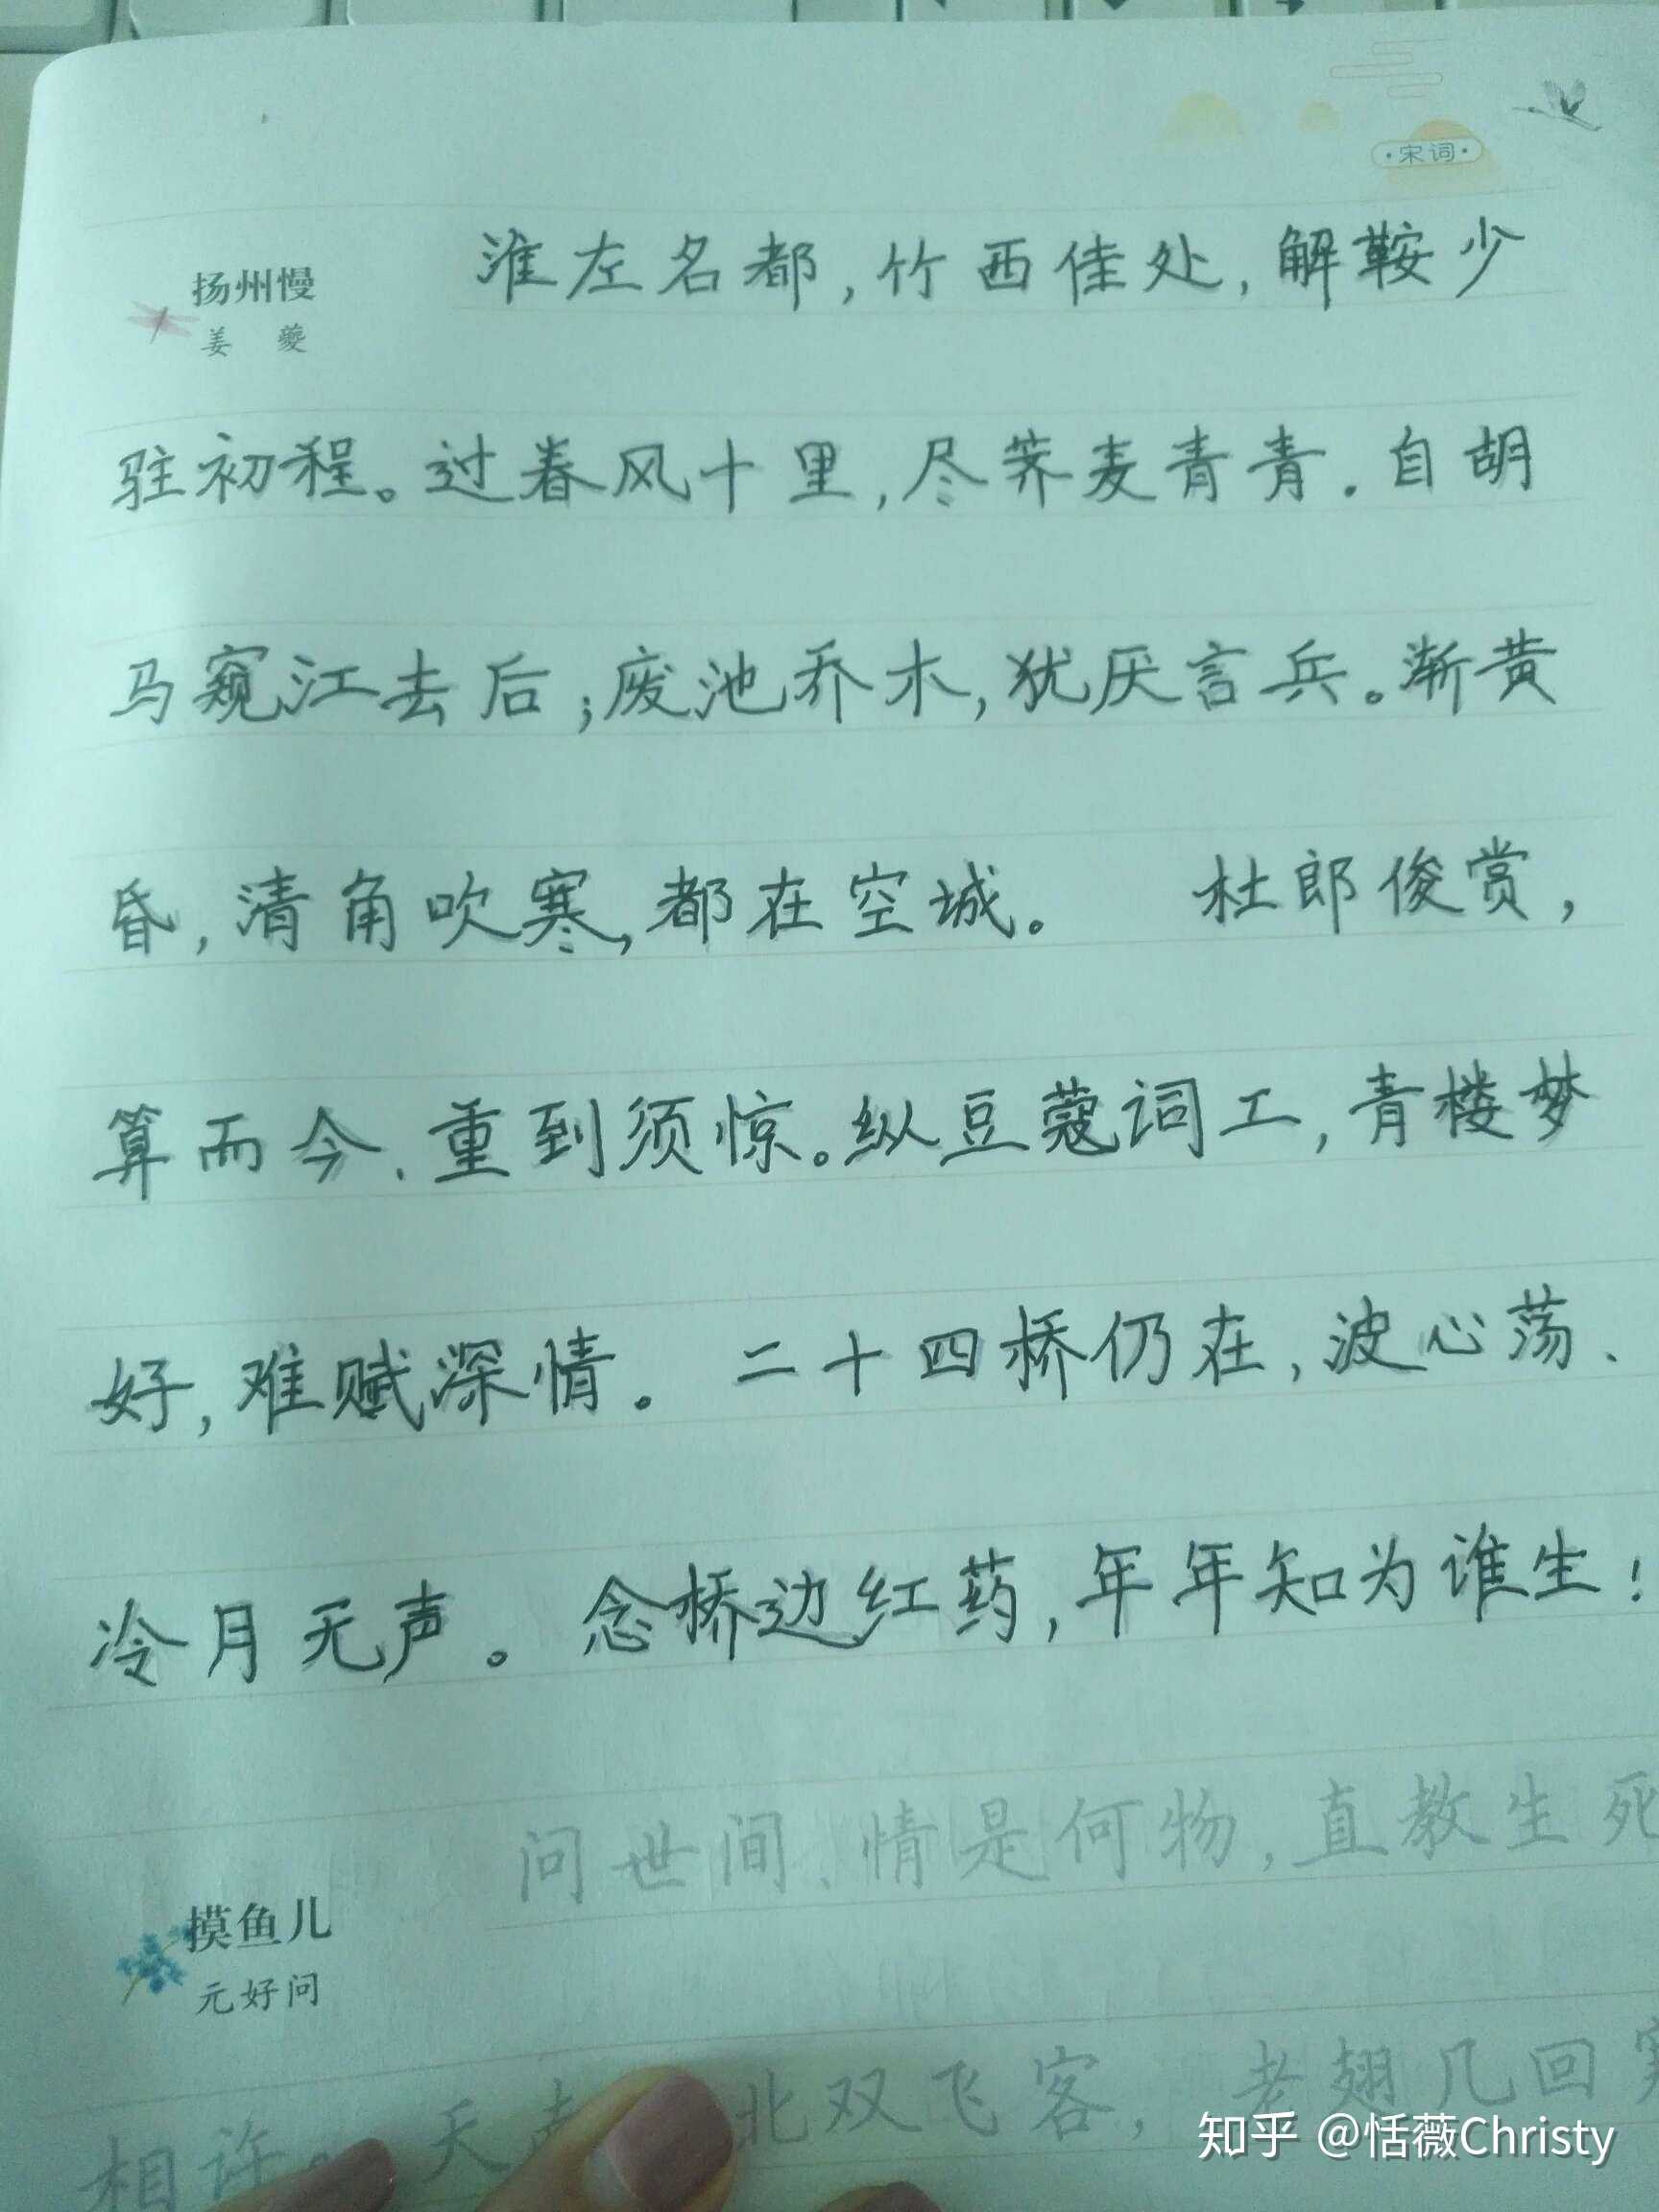 ·宋词·
扬州慢
姜 夔
淮左名都，竹西佳处，解鞍少
驻初程。过春风十里，尽荠麦青青．自胡
马窥江去后；废池乔木，犹厌言兵。渐黄
昏，清角吹寒，都在空城。 杜郎俊赏，
算而今、重到须惊。纵豆蔻词工，青楼梦
好，难赋深情。 二十四桥仍在，波心荡、
冷月无声。念桥边红药，年年知为谁生！
摸鱼儿
元好问
问世间、情是何物，直教生死
相许。天 北双飞客，老翅几回
知乎 @恬薇Christy